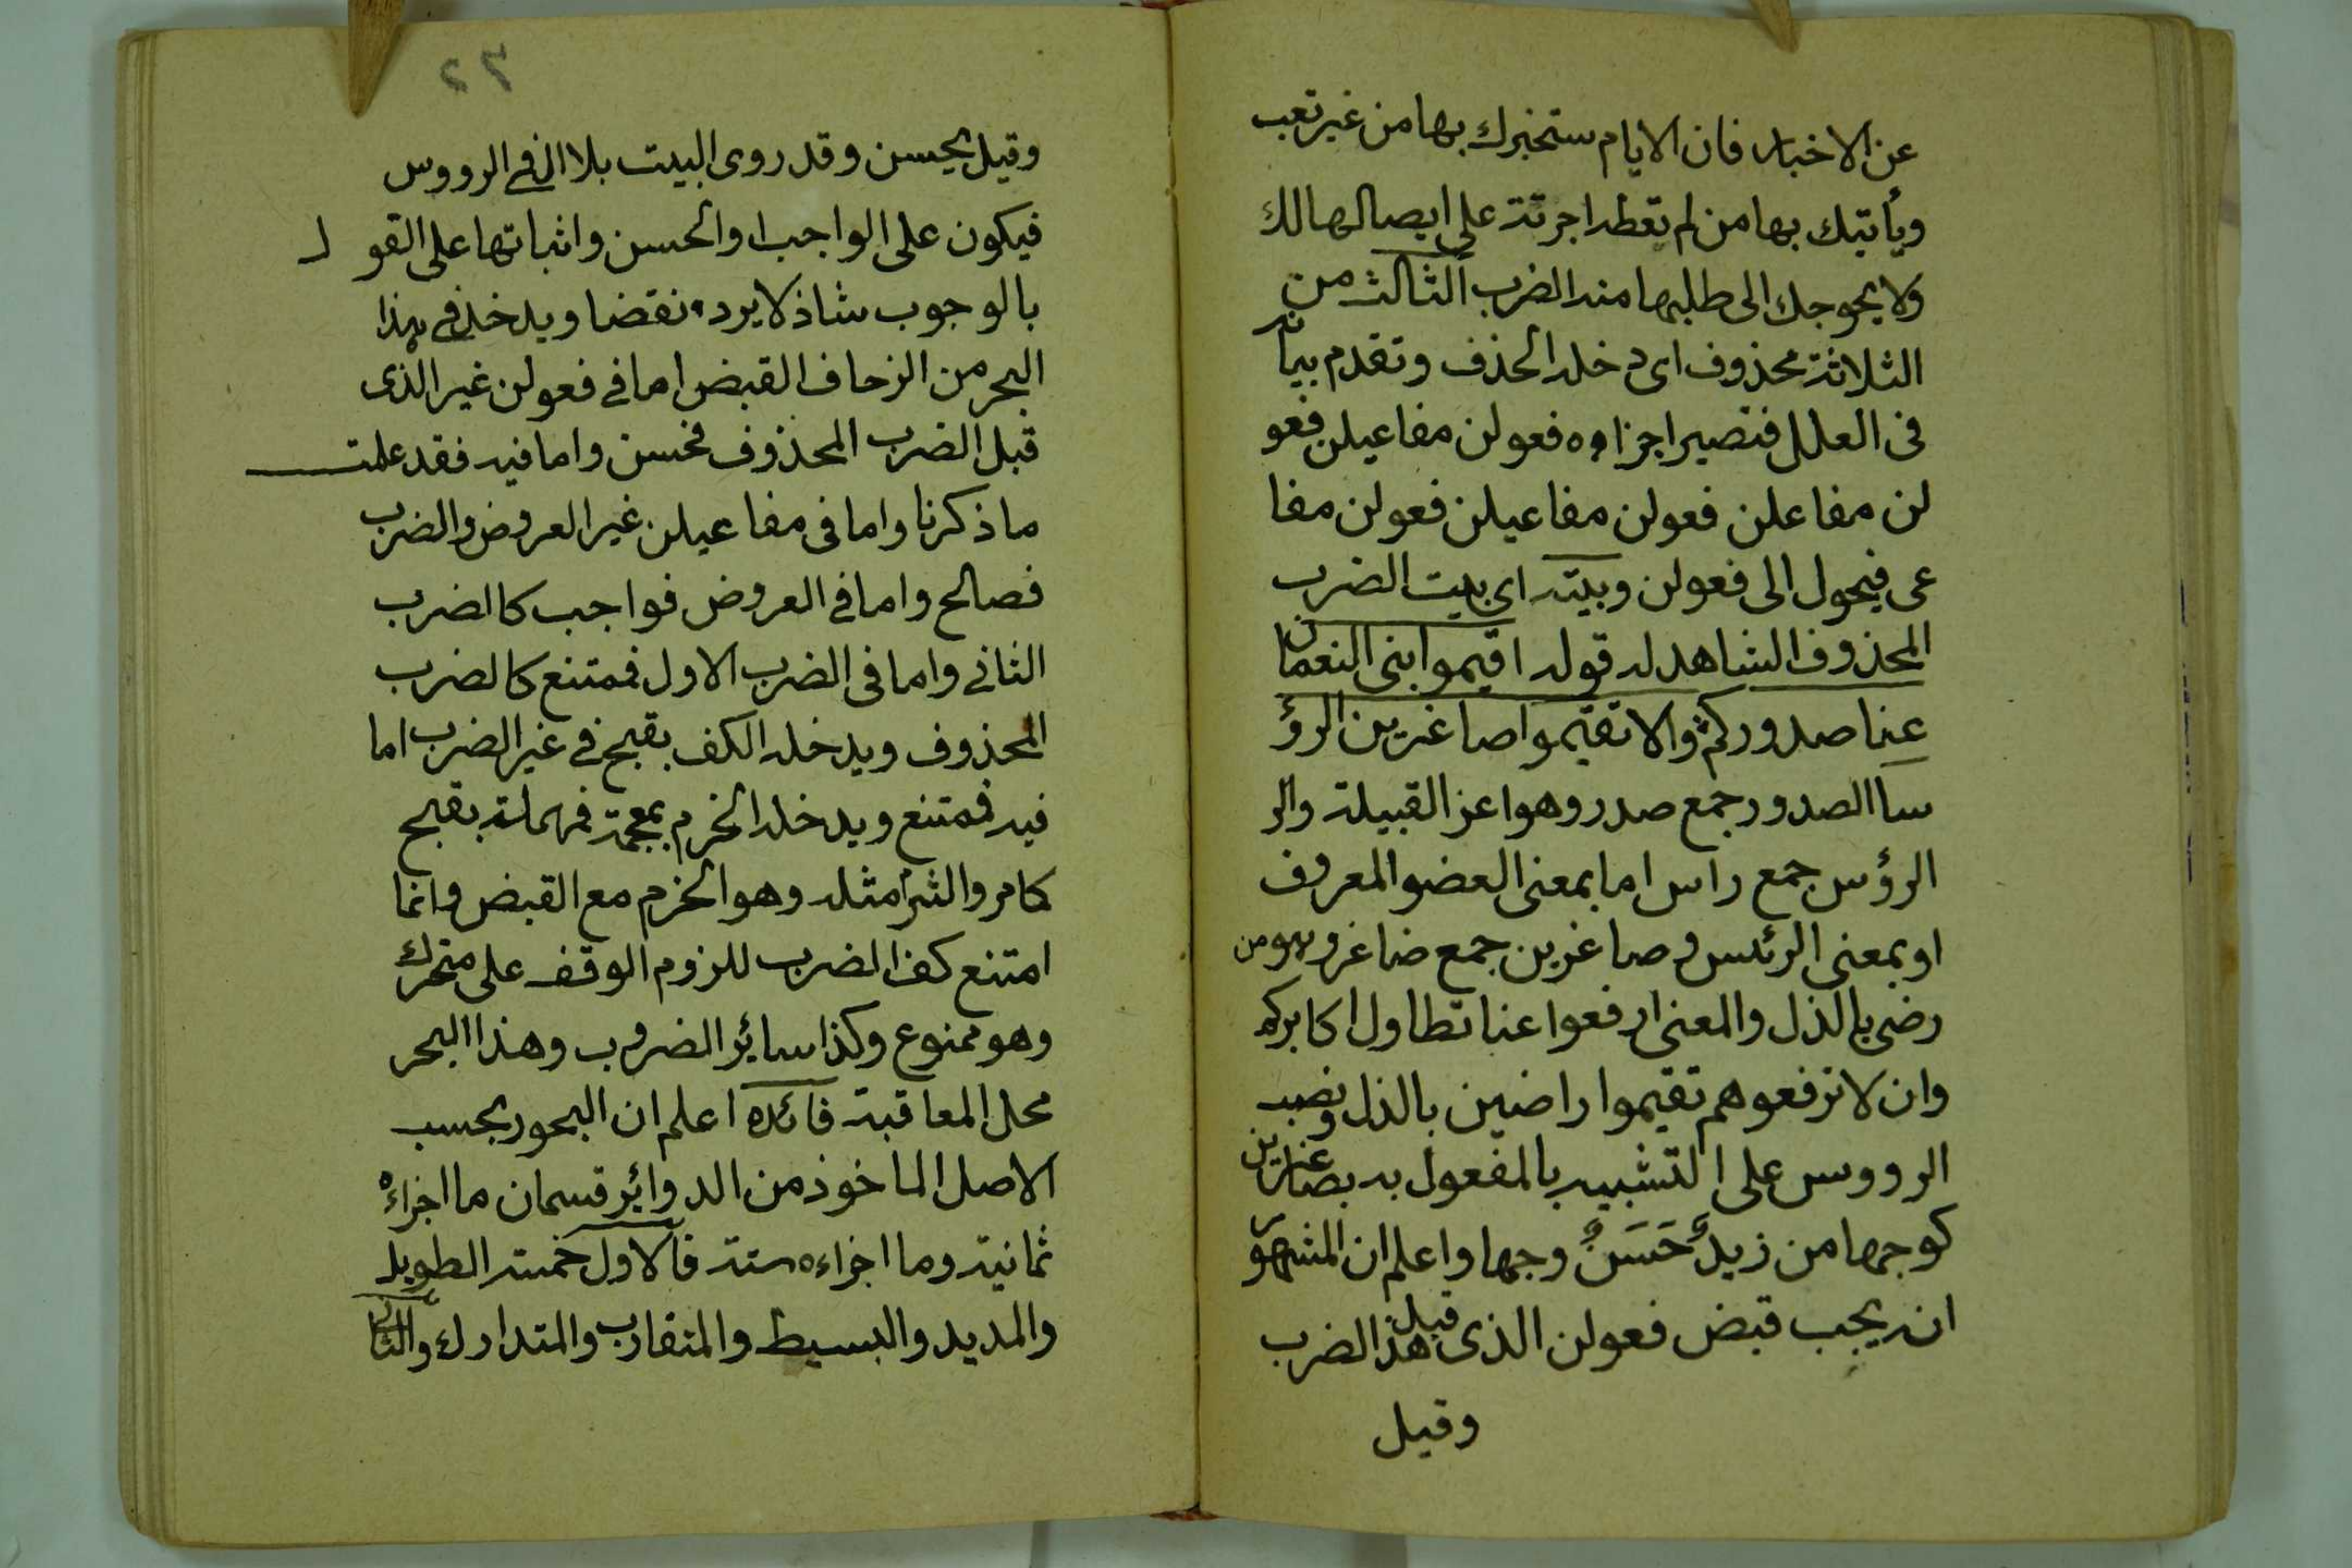 عن الاخبار فان الايام ستخبرك بها من غير تعب
ويأتيك بها من لم تعطه اجرته على ايصالها لك
ولا يحوجك الى طلبها منه الضرب الثالث من
الثلاثة محذوف اى دخله الحذف وتقدم بيانه
فى العلل فتصير اجزاوه فعولن مفاعيلن فعو
لن مفاعلن فعولن مفاعيلن فعولن مفا
عى فيحول الى فعولن وبيته اى بيت الضرب
المحذوف الشاهد له قوله اقيموا بنى النعمان
عنا صدوركم والا تقيموا صاغرين الرؤ
سا الصدور جمع صدر وهو اعز القبيلة والر
الرؤس جمع راس اما بمعنى العضو المعروف
او بمعنى الرئس وصاغرين جمع ضاغر وهو من
رضى بالذل والمعنى ارفعوا عنا تطاول اكابركم
وان لا ترفعوهم تقيموا راضين بالذل ونصب
الرووس على التشبيه بالمفعول به بصاغرين
كوجها من زيدٌ حَسَنٌ وجها واعلم ان المشهور
انه يجب قبض فعولن الذى قبل هذا الضرب
وقيل
٦٢
وقيل يحسن وقد روى البيت بلا الف فى الرووس
فيكون على الواجب او الحسن واثباتها على القو ل
بالوجوب شاذ لا يرد نقضا ويدخل فى هذا
البحر من الزحاف القبض اما فى فعولن غير الذى
قبل الضرب المحذوف فحسن واما فيه فقد علمت
ما ذكرنا واما فى مفاعيلن غير العروض والضرب
فصالح واما فى العروض فواجب كالضرب
الثانى واما فى الضرب الاول فممتنع كالضرب
المحذوف ويدخله الكف بقبح فى غير الضرب اما
فيه فممتنع ويدخله الخرم بمعجمة فمهملة بقبح
كما مر والثرم مثله وهو الخرم مع القبض وانما
امتنع كف الضرب للزوم الوقف على متحرك
وهو ممنوع وكذا سائر الضروب وهذا البحر
محل المعاقبة فائده اعلم ان البحور بحسب
الاصل الماخوذ من الدوائر قسمان ما اجزاءه
ثمانية وما اجزاءه ستة فالاول خمسة الطويل
والمديد والبسيط والمتقارب والمتدارك والثانى